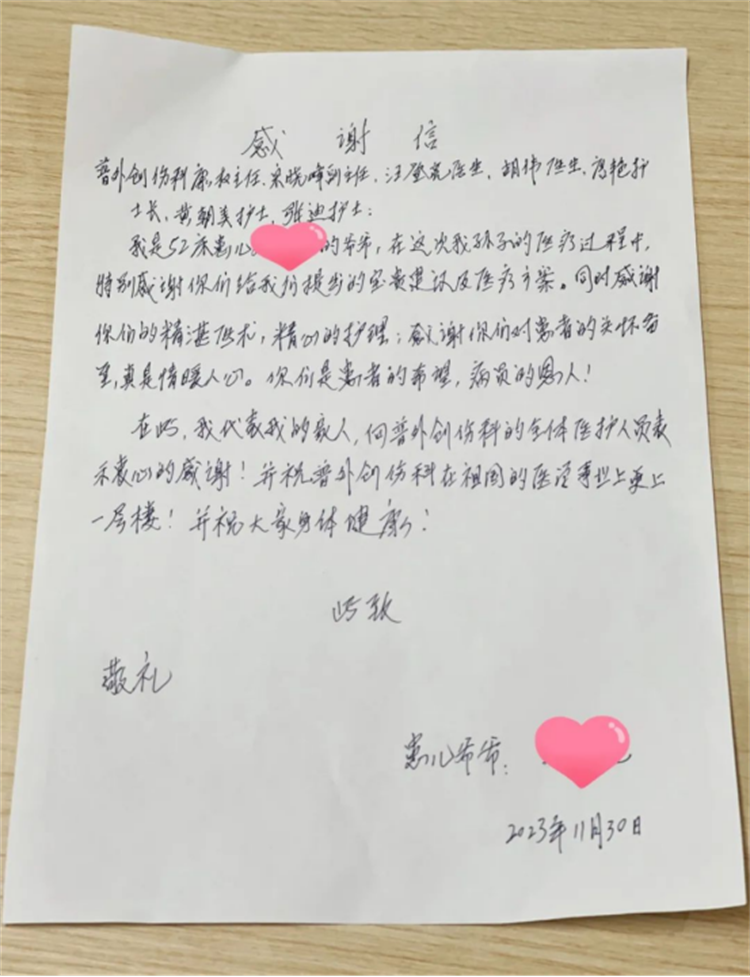 感谢信
普外创伤科康权主任、宋晓峰副主任、汪登亮医生、胡伟医生、唐艳护
士长、黄朝美护士、张迪护士:
我是52床患儿的爷爷,在这次我孙子的医疗过程中,
特别感谢你们给我们提出的宝贵建议及医疗方案。同时感谢
你们的精湛医术,精心的护理;感谢你们对患者的关怀备
至,真是情暖人心。你们是患者的希望,病员的恩人!
在此,我代表我的家人,向普外创伤科的全体医护人员表
示衷心的感谢!并祝普外创伤科在祖国的医疗事业上更上
一层楼!并祝大家身体健康!
此致
敬礼
患儿爷爷:
2023年11月30日